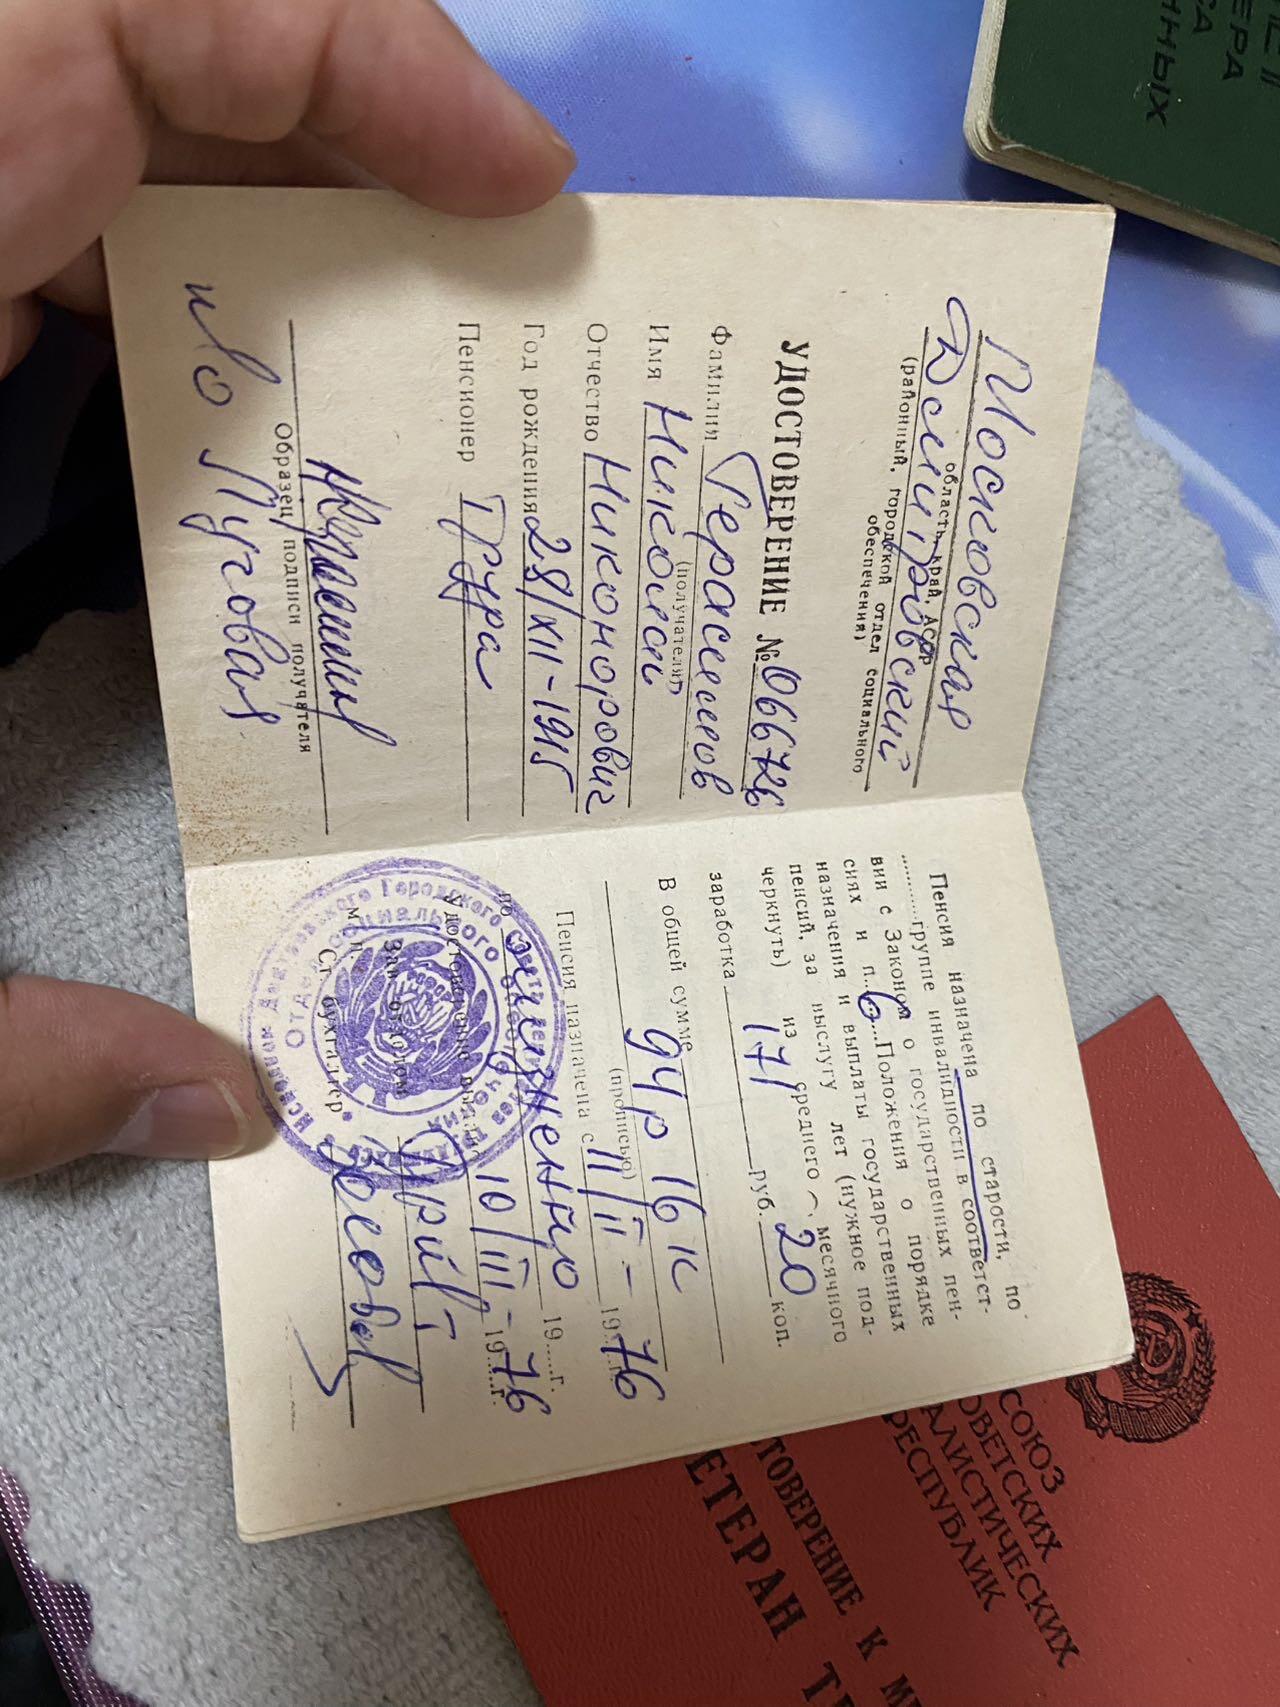 Московская
область, край, АССР
Дмитровский
(районный, городской отдел социального
обеспечения)
УДОСТОВЕРЕНИЕ № 066726
Фамилия Герасимов
(получателя)
Имя Николай
Отчество Никонорович
Год рождения 28/XII-1915
Пенсионер Труда
Образец подписи получателя
п/о Луговая
Пенсия назначена по старости, по
............группе инвалидности в соответст-
вии с Законом о государственных пен-
сиях и п. 6 Положения о порядке
назначения и выплаты государственных
пенсий, за выслугу лет (нужное под-
черкнуть) из среднего месячного
заработка 171 руб. 20 коп.
В общей сумме 94р 16к
(прописью)
Пенсия назначена с 11/II- 1976 г.
по пожизненно 19....г.
Удостоверение выдано 10/III- 1976 г.
М. П.
Зав. отделом
Ст. бухгалтер
Дмитровского Городского
Отдел социального
СОЮЗ
СОВЕТСКИХ
СОЦИАЛИСТИЧЕСКИХ
РЕСПУБЛИК
УДОСТОВЕРЕНИЕ К МЕ
ВЕТЕРАН ТР
ЕРА
ННЫХ